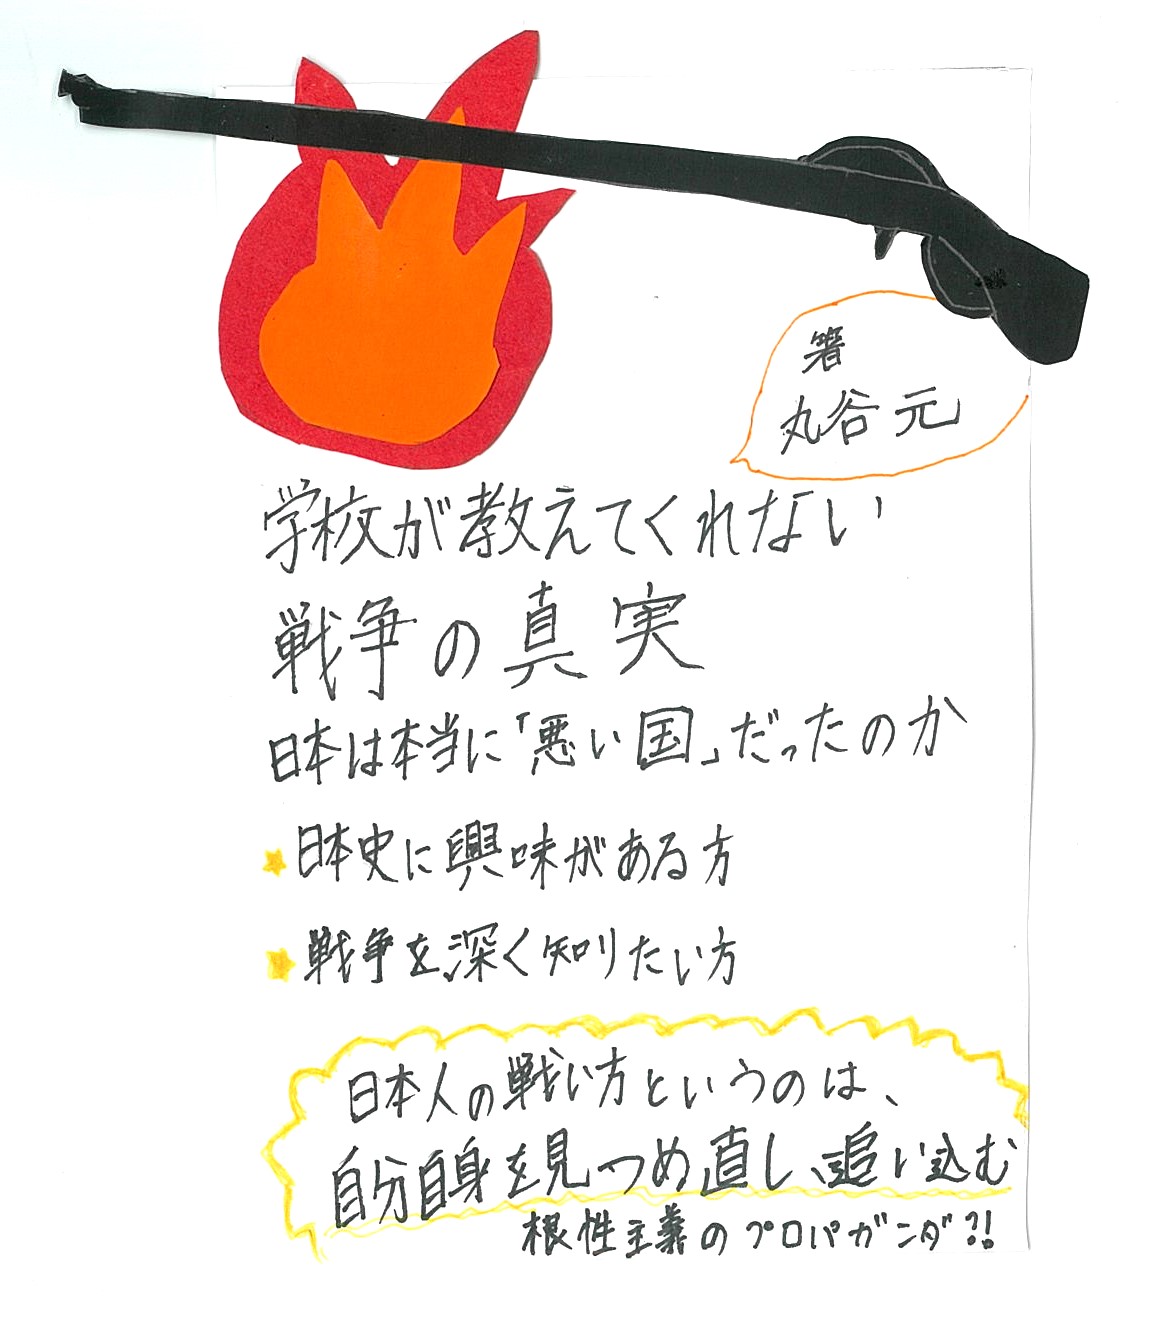 箸
丸谷 元
学校が教えてくれない
戦争の真実
日本は本当に「悪い国」だったのか
★日本史に興味がある方
★戦争を深く知りたい方
日本人の戦い方というのは、
自分自身を見つめ直し、追い込む
根性主義のプロパガンダ?!